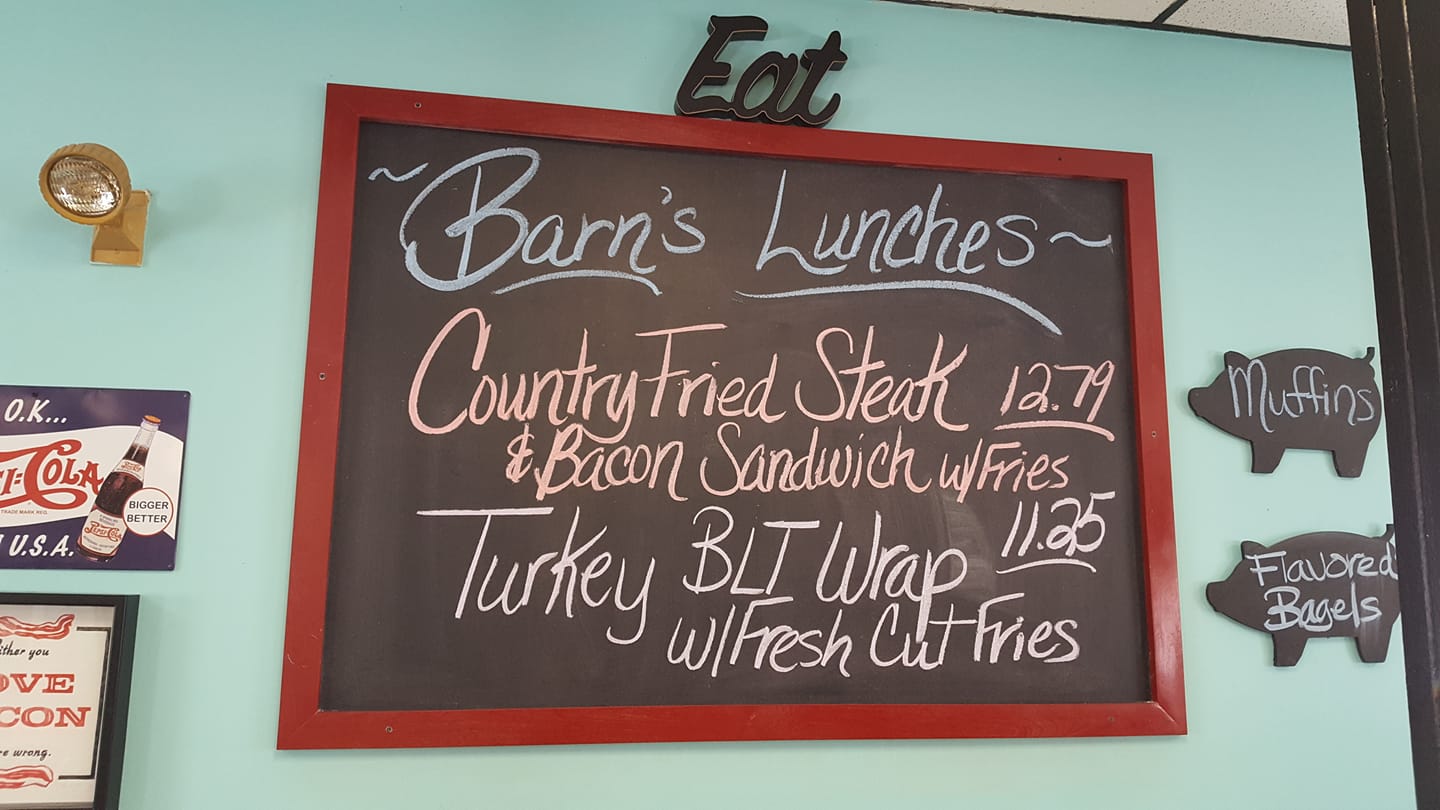 Eat
~Barn's Lunches~
Country Fried Steak 12.79
& Bacon Sandwich w/Fries
Turkey BLT Wrap 11.25
w/Fresh Cut Fries
Muffins
Flavored
Bagels
O.K...
COLA
TRADE MARK REG.
BIGGER
BETTER
Pepsi-Cola
U.S.A.
you
wrong.